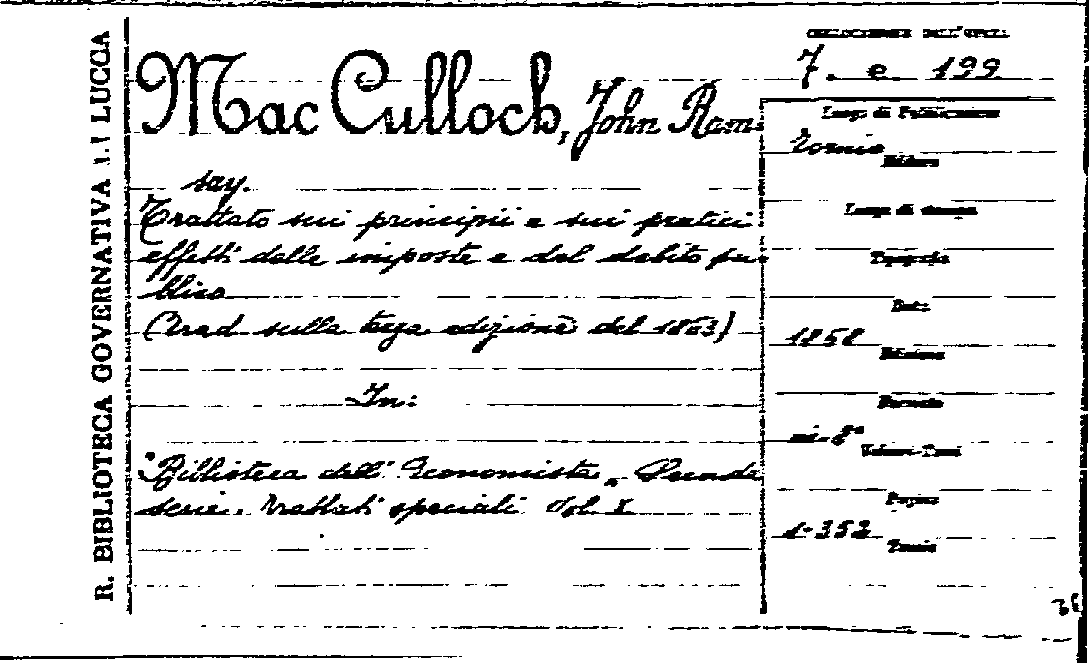 R. BIBLIOTECA GOVERNATIVA DI LUCCA
COLLOCAZIONE DELL'OPERA
7. e. 199
Mac Culloch, John Ram-
say.
Trattato sui principii e sui pratici
effetti delle imposte e del debito pu-
blico
(Trad sulla terza edizione del 1863)
In:
"Biblioteca dell' Economista„ Seconda
serie. Trattati speciali Vol. X
Luogo di Pubblicazione
Torino
Editore
Luogo di stampa
Tipografia
Data
1858
Edizione
Formato
in-8°
Volumi-Tomi
Pagine
1-352
Tavole